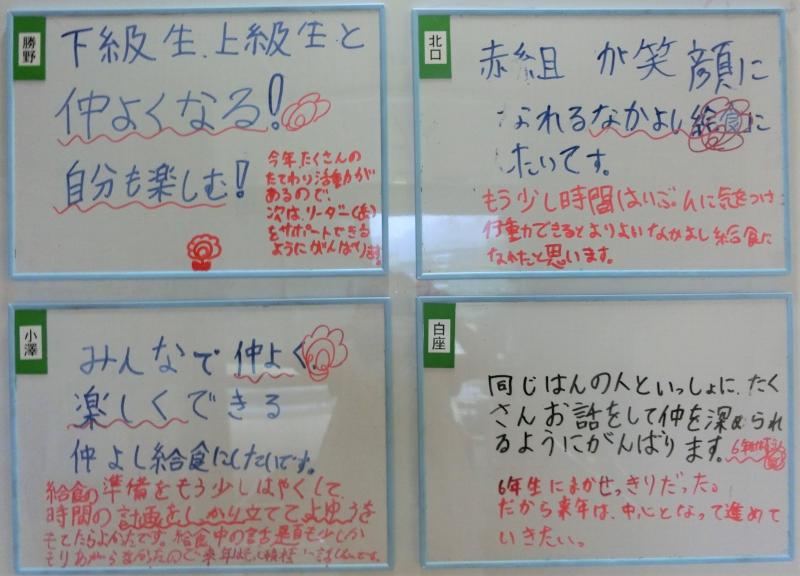 勝野
下級生、上級生と
仲よくなる!
自分も楽しむ!
今年、たくさんの
たてわり活動が
あるので、
次は、リーダー
をサポートできる
ようにがんばります。
北口
赤組 が笑顔に
なれるなかよし給食に
したいです。
もう少し時間はいぶんに気をつけ
行動できるとよりよいなかよし給食に
なれたと思います。
小澤
みんなで仲よく、
楽しくできる
仲よし給食にしたいです。
給食の準備をもう少しはやくして、
時間の計画をしっかり立ててよゆうを
もてたらよかったです。給食中の
もりあがら なかったので来年は
白座
同じはんの人といっしょに、たく
さんお話をして仲を深められ
るようにがんばります。
6年生にまかせっきりだった。
だから来年は、中心となって進めて
いきたい。